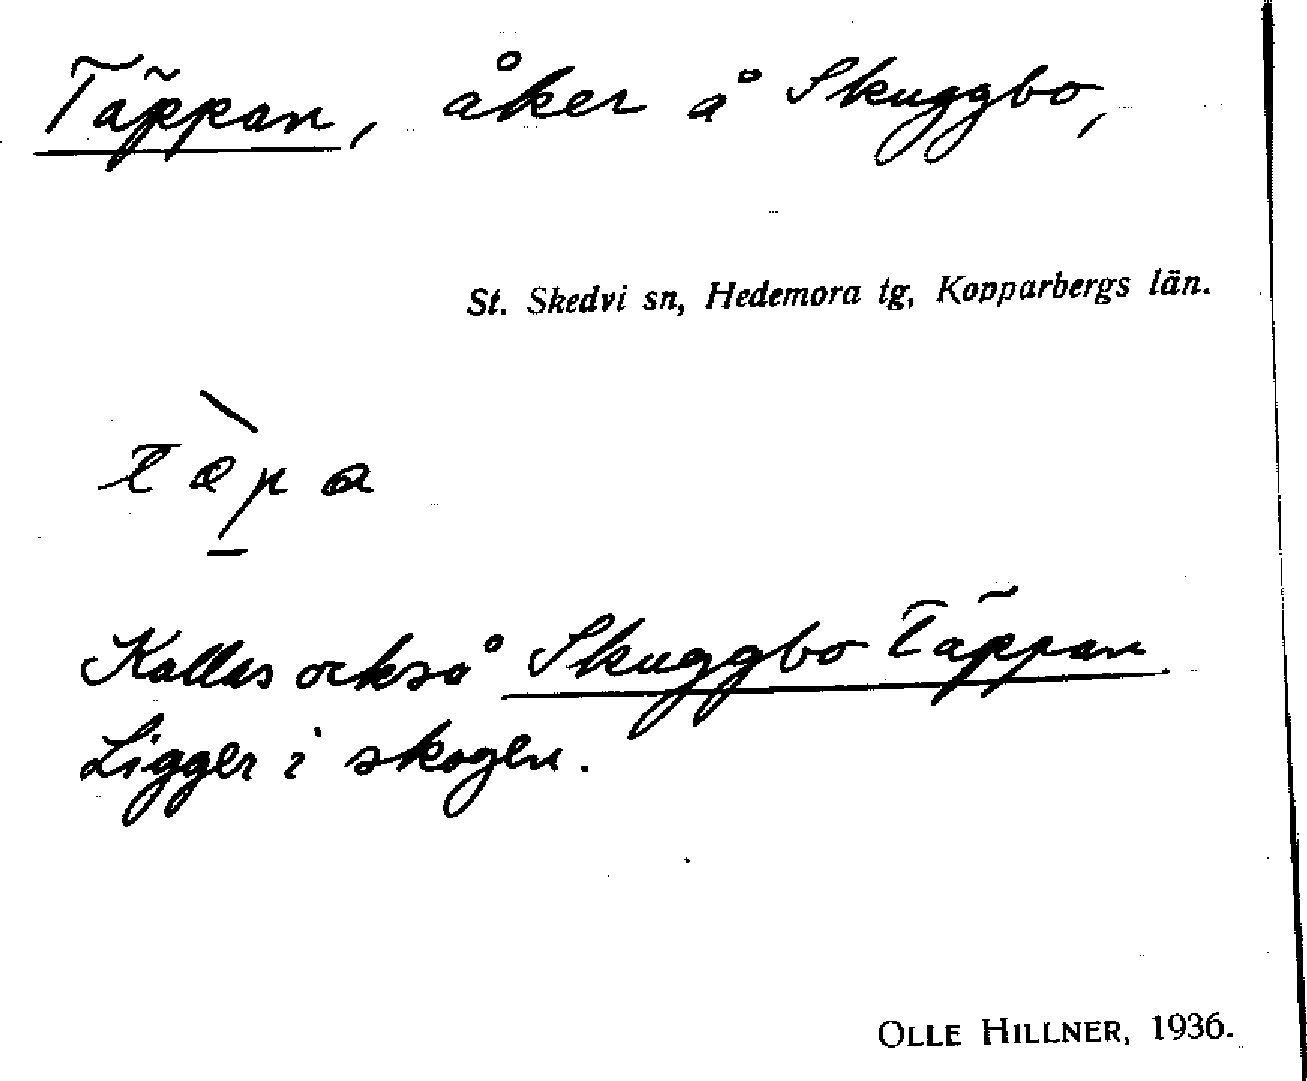 Täppan, åker å Skuggbo,
St. Skedvi sn, Hedemora tg, Kopparbergs län.
tæ̀pa
Kallas också Skuggbo Täppan
Ligger i skogen.
OLLE HILLNER, 1936.